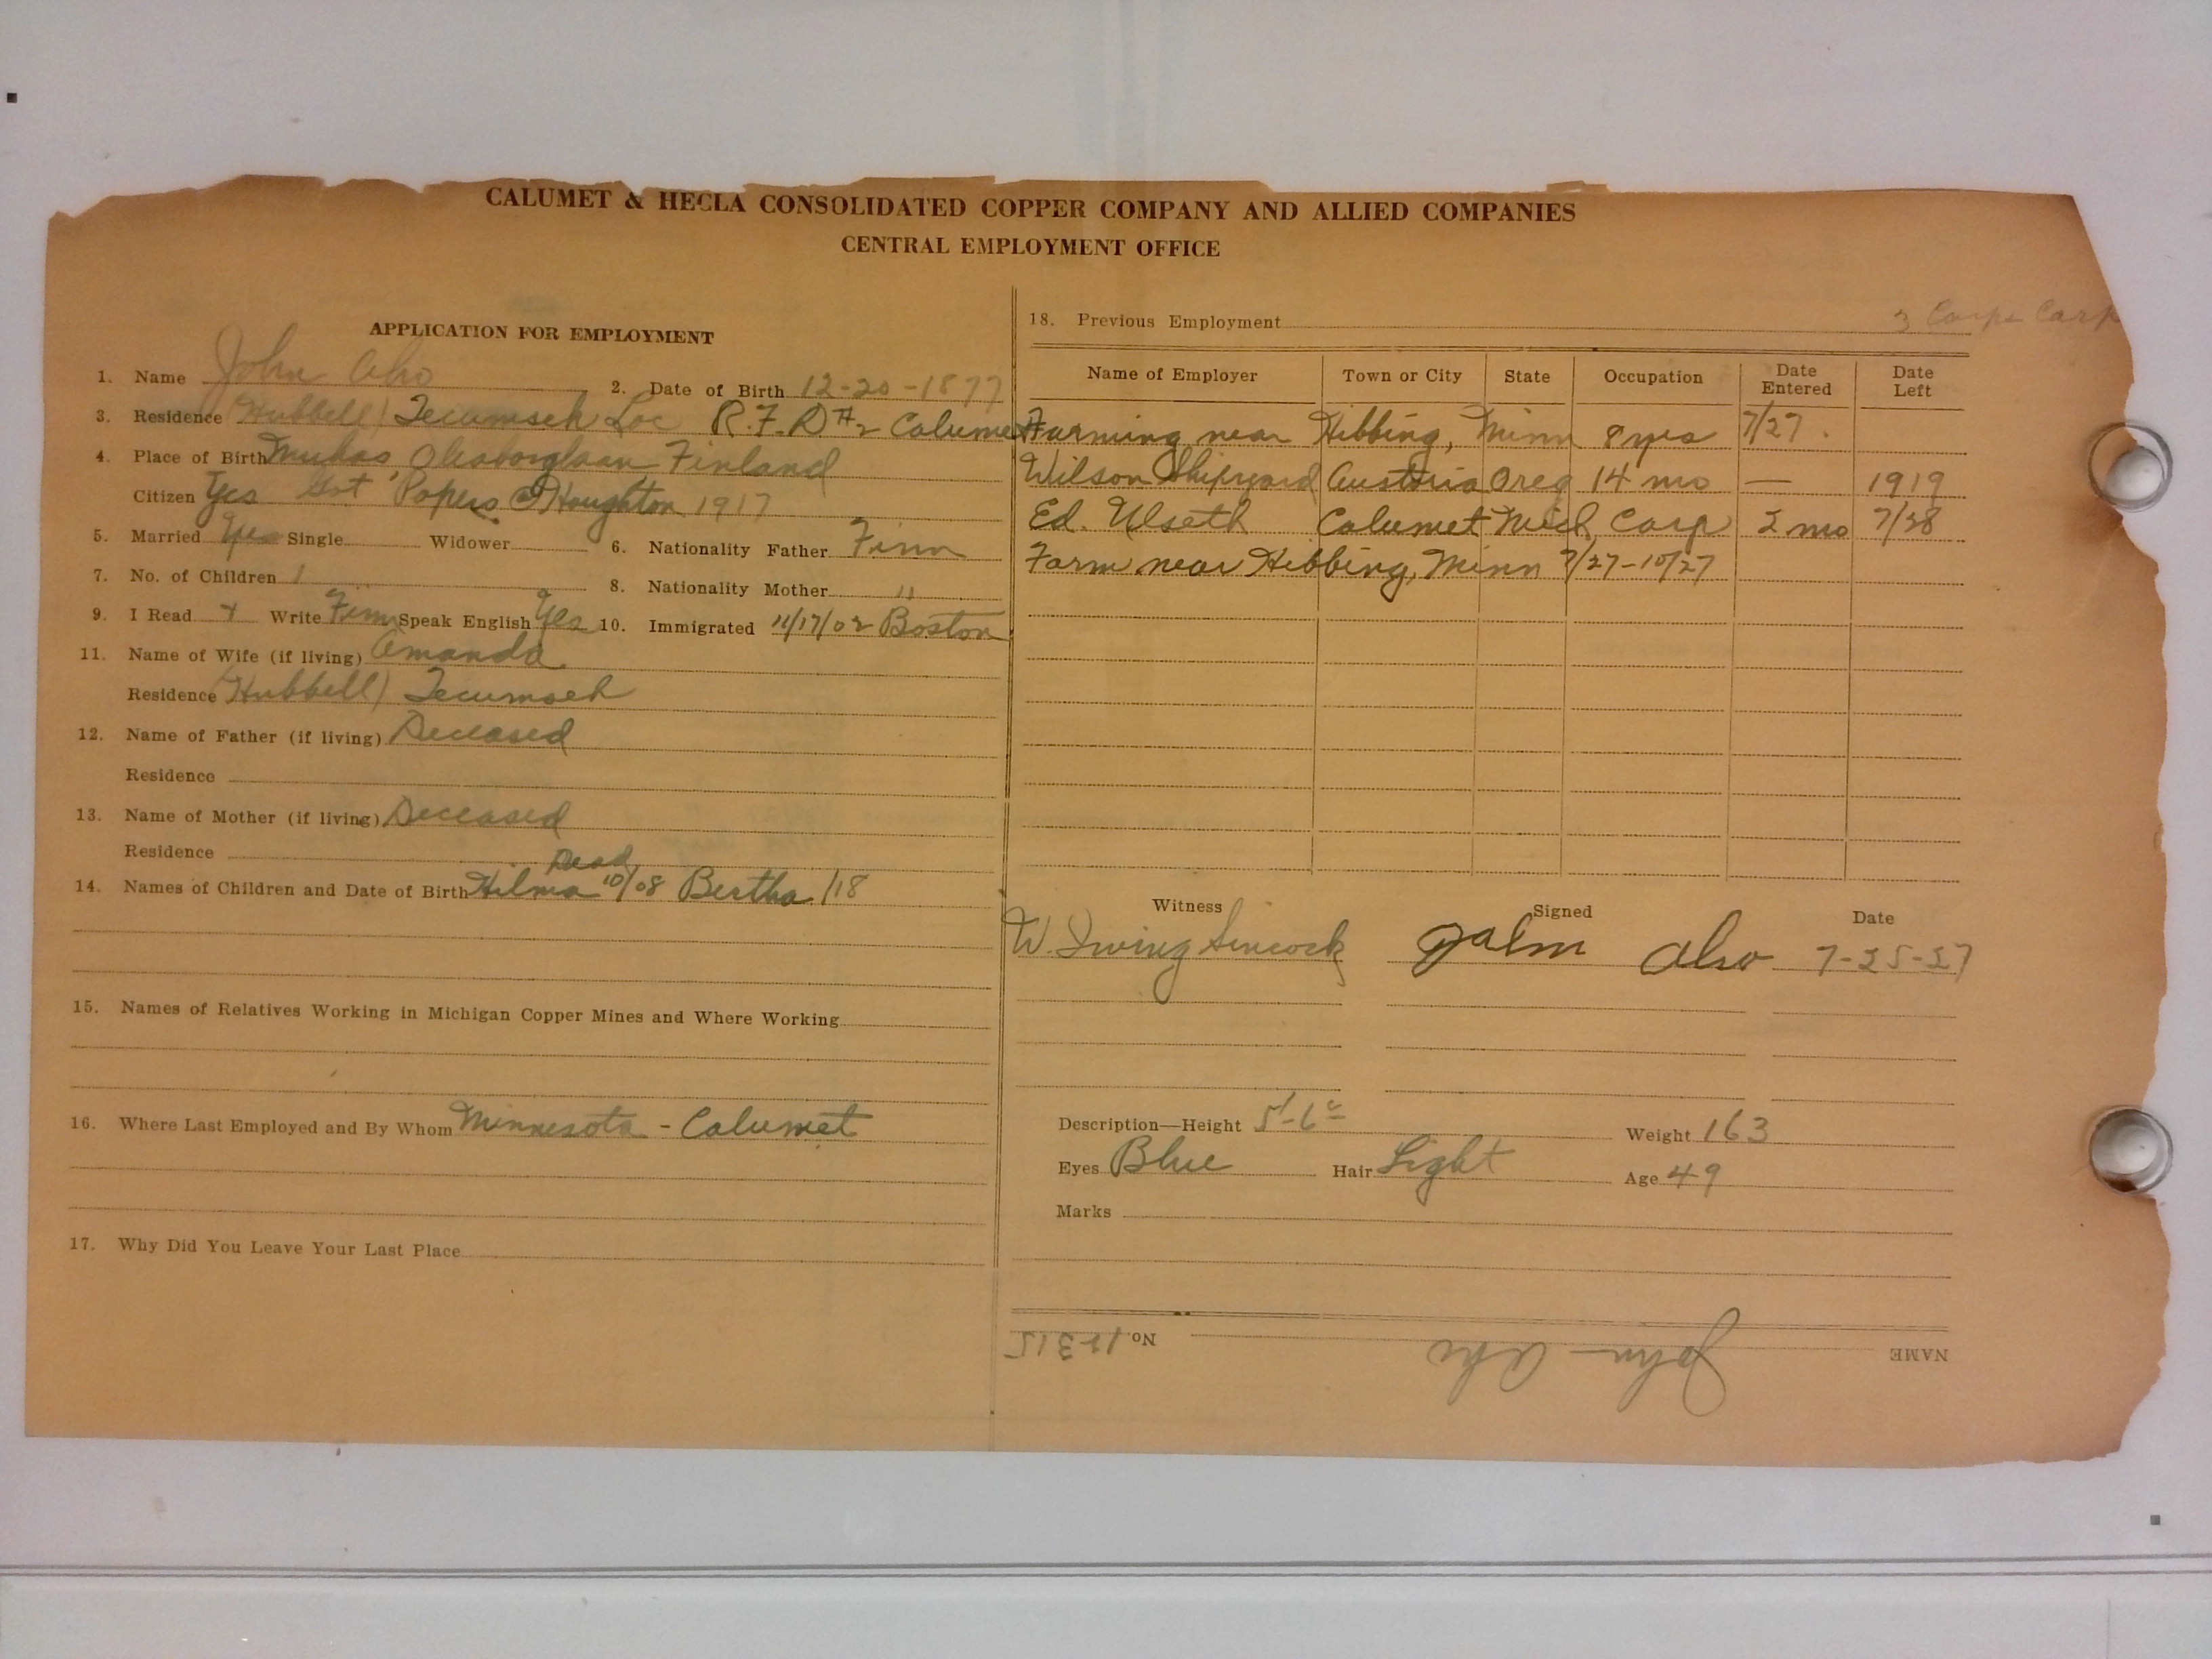 CALUMET & HECLA CONSOLIDATED COPPER COMPANY AND ALLIED COMPANIES
CENTRAL EMPLOYMENT OFFICE
APPLICATION FOR EMPLOYMENT
1. Name John Aho 2. Date of Birth 12-20-1877
3. Residence (Hubbell) Tecumseh Loc R.F.D #2 Calumet
4. Place of Birth Finland
Citizen Yes Got Papers @ Houghton 1917
5. Married Yes Single Widower 6. Nationality Father Finn
7. No. of Children 1 8. Nationality Mother "
9. I Read + Write Finn Speak English Yes 10. Immigrated 11/17/02 Boston
11. Name of Wife (if living) Amanda
Residence (Hubbell) Tecumseh
12. Name of Father (if living) Deceased
Residence
13. Name of Mother (if living) Deceased
Residence
Dead
14. Names of Children and Date of Birth Hilma 10/08 Bertha /18
15. Names of Relatives Working in Michigan Copper Mines and Where Working
16. Where Last Employed and By Whom Minnesota - Calumet
17. Why Did You Leave Your Last Place
18. Previous Employment
Name of Employer Town or City State Occupation Date Entered Date Left
Farming near Hibbing, Minn 8 yrs 7/27.
Wilson Shipyard Austria Oreg 14 mo — 1919
Ed. Ulseth Calumet Mich Carp 2 mo 7/28
Farm near Hibbing, Minn 7/27-10/27
Witness Signed Date
W. Irving Sincock Aho 7-25-27
Description—Height 5'-6" Weight 163
Eyes Blue Hair Light Age 49
Marks
NAME John Aho No. 12315